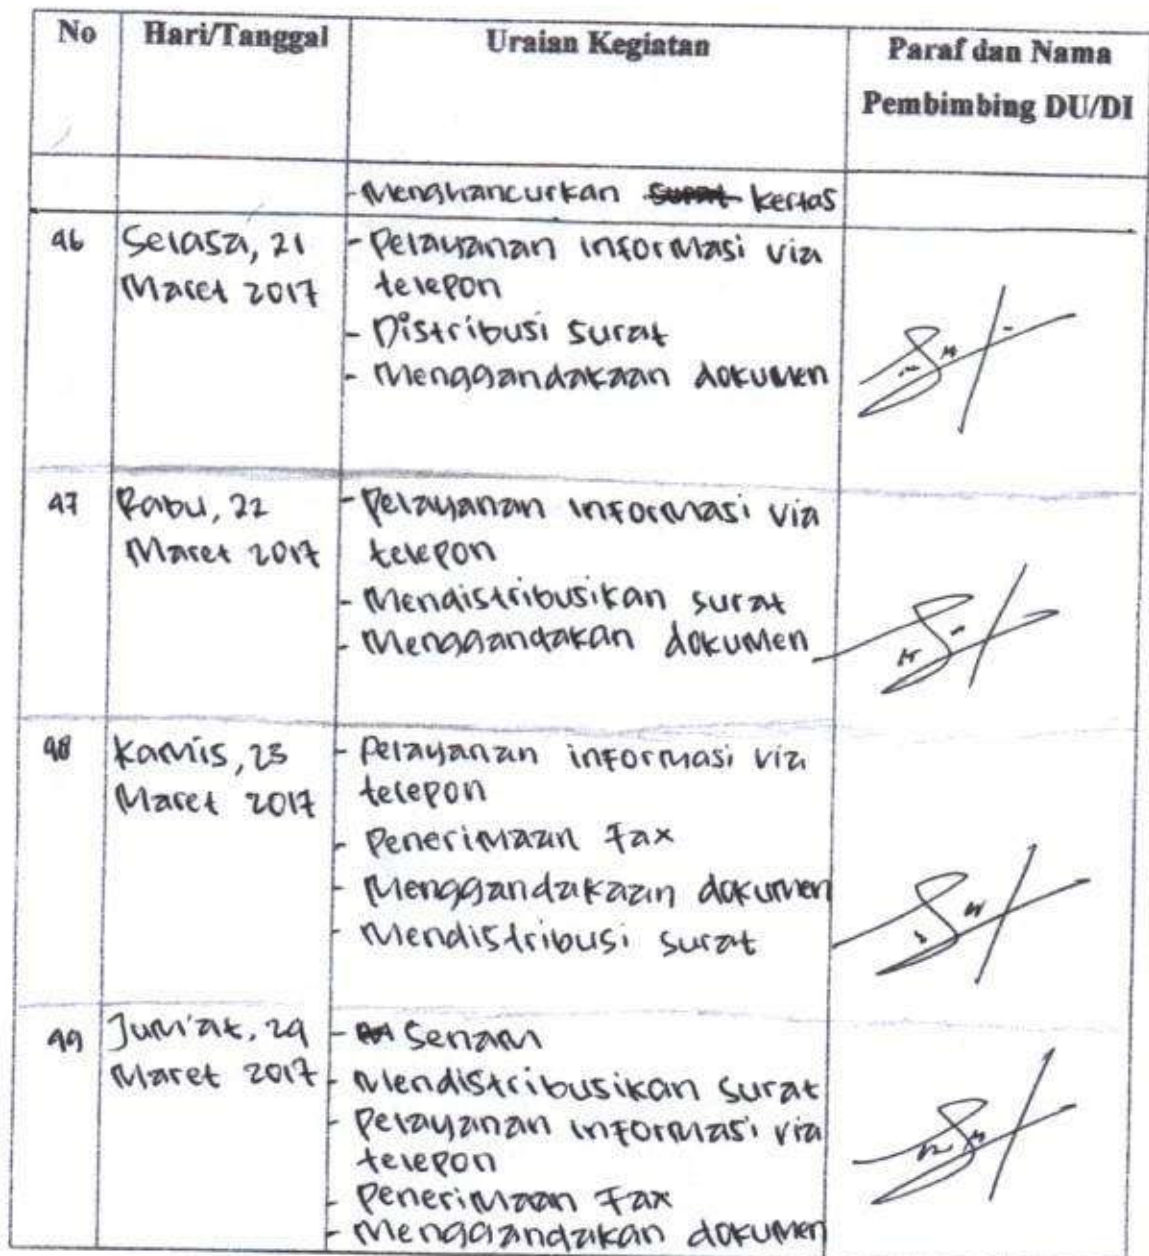 No Hari/Tanggal Uraian Kegiatan Paraf dan Nama
Pembimbing DU/DI
- Menghancurkan kertas
46 Selasa, 21 - Pelayanan informasi via
Maret 2017 telepon
- Distribusi surat
- Menggandakaan dokumen
47 Rabu, 22 - Pelayanan informasi via
Maret 2017 telepon
- Mendistribusikan surat
- Menggandakan dokumen
48 Kamis, 23 - Pelayanan informasi via
Maret 2017 telepon
- Penerimaan Fax
- Menggandakaan dokumen
- Mendistribusi surat
49 Jum'at, 24 - Senam
Maret 2017 - Mendistribusikan surat
- Pelayanan informasi via
telepon
- Penerimaan Fax
- Menggandakan dokumen